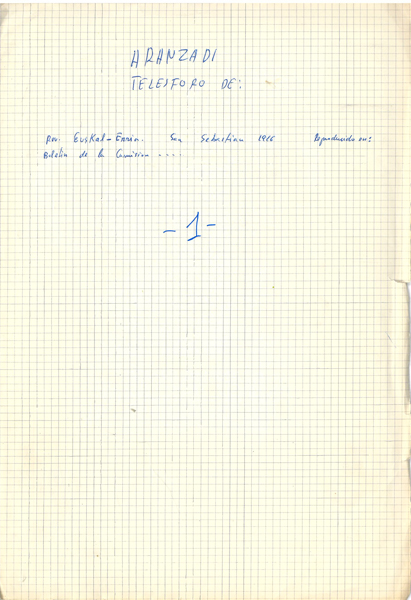 ARANZADI
TELESFORO DE:
Rev. Euskal-Erria. San Sebastian 1916 Reproducido en:
Boletin de la Comision ....
-1-